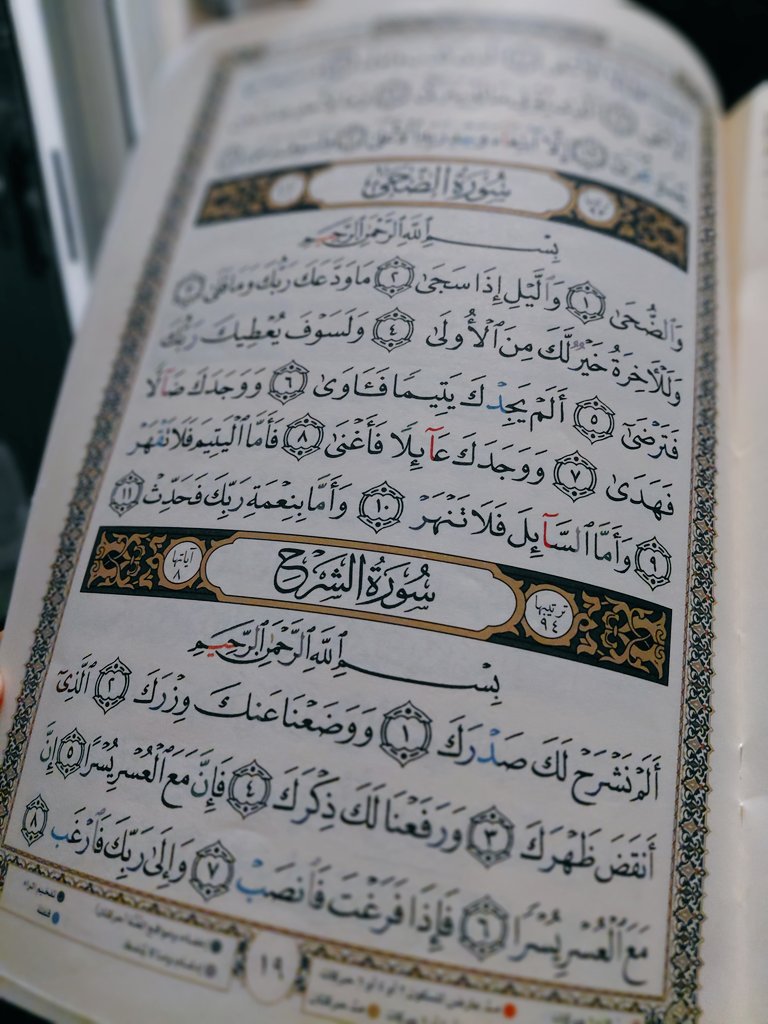 سُورَةُ الضُّحَىٰ
بِسْمِ ٱللَّهِ ٱلرَّحْمَٰنِ ٱلرَّحِيمِ
وَٱلضُّحَىٰ ١ وَٱلَّيْلِ إِذَا سَجَىٰ ٢ مَا وَدَّعَكَ رَبُّكَ وَمَا قَلَىٰ
وَلَلْءَاخِرَةُ خَيْرٌ لَّكَ مِنَ ٱلْأُولَىٰ ٤ وَلَسَوْفَ يُعْطِيكَ رَبُّكَ
فَتَرْضَىٰٓ ٥ أَلَمْ يَجِدْكَ يَتِيمًا فَـَٔاوَىٰ ٦ وَوَجَدَكَ ضَآلًّا
فَهَدَىٰ ٧ وَوَجَدَكَ عَآئِلًا فَأَغْنَىٰ ٨ فَأَمَّا ٱلْيَتِيمَ فَلَا تَقْهَرْ
٩ وَأَمَّا ٱلسَّآئِلَ فَلَا تَنْهَرْ ١٠ وَأَمَّا بِنِعْمَةِ رَبِّكَ فَحَدِّثْ ١١
ترتيبها ٩٤ سُورَةُ الشَّرْحِ آياتها ٨
بِسْمِ ٱللَّهِ ٱلرَّحْمَٰنِ ٱلرَّحِيمِ
أَلَمْ نَشْرَحْ لَكَ صَدْرَكَ ١ وَوَضَعْنَا عَنكَ وِزْرَكَ ٢ ٱلَّذِىٓ
أَنقَضَ ظَهْرَكَ ٣ وَرَفَعْنَا لَكَ ذِكْرَكَ ٤ فَإِنَّ مَعَ ٱلْعُسْرِ يُسْرًا ٥ إِنَّ
مَعَ ٱلْعُسْرِ يُسْرًا ٦ فَإِذَا فَرَغْتَ فَٱنصَبْ ٧ وَإِلَىٰ رَبِّكَ فَٱرْغَب ٨
١٩